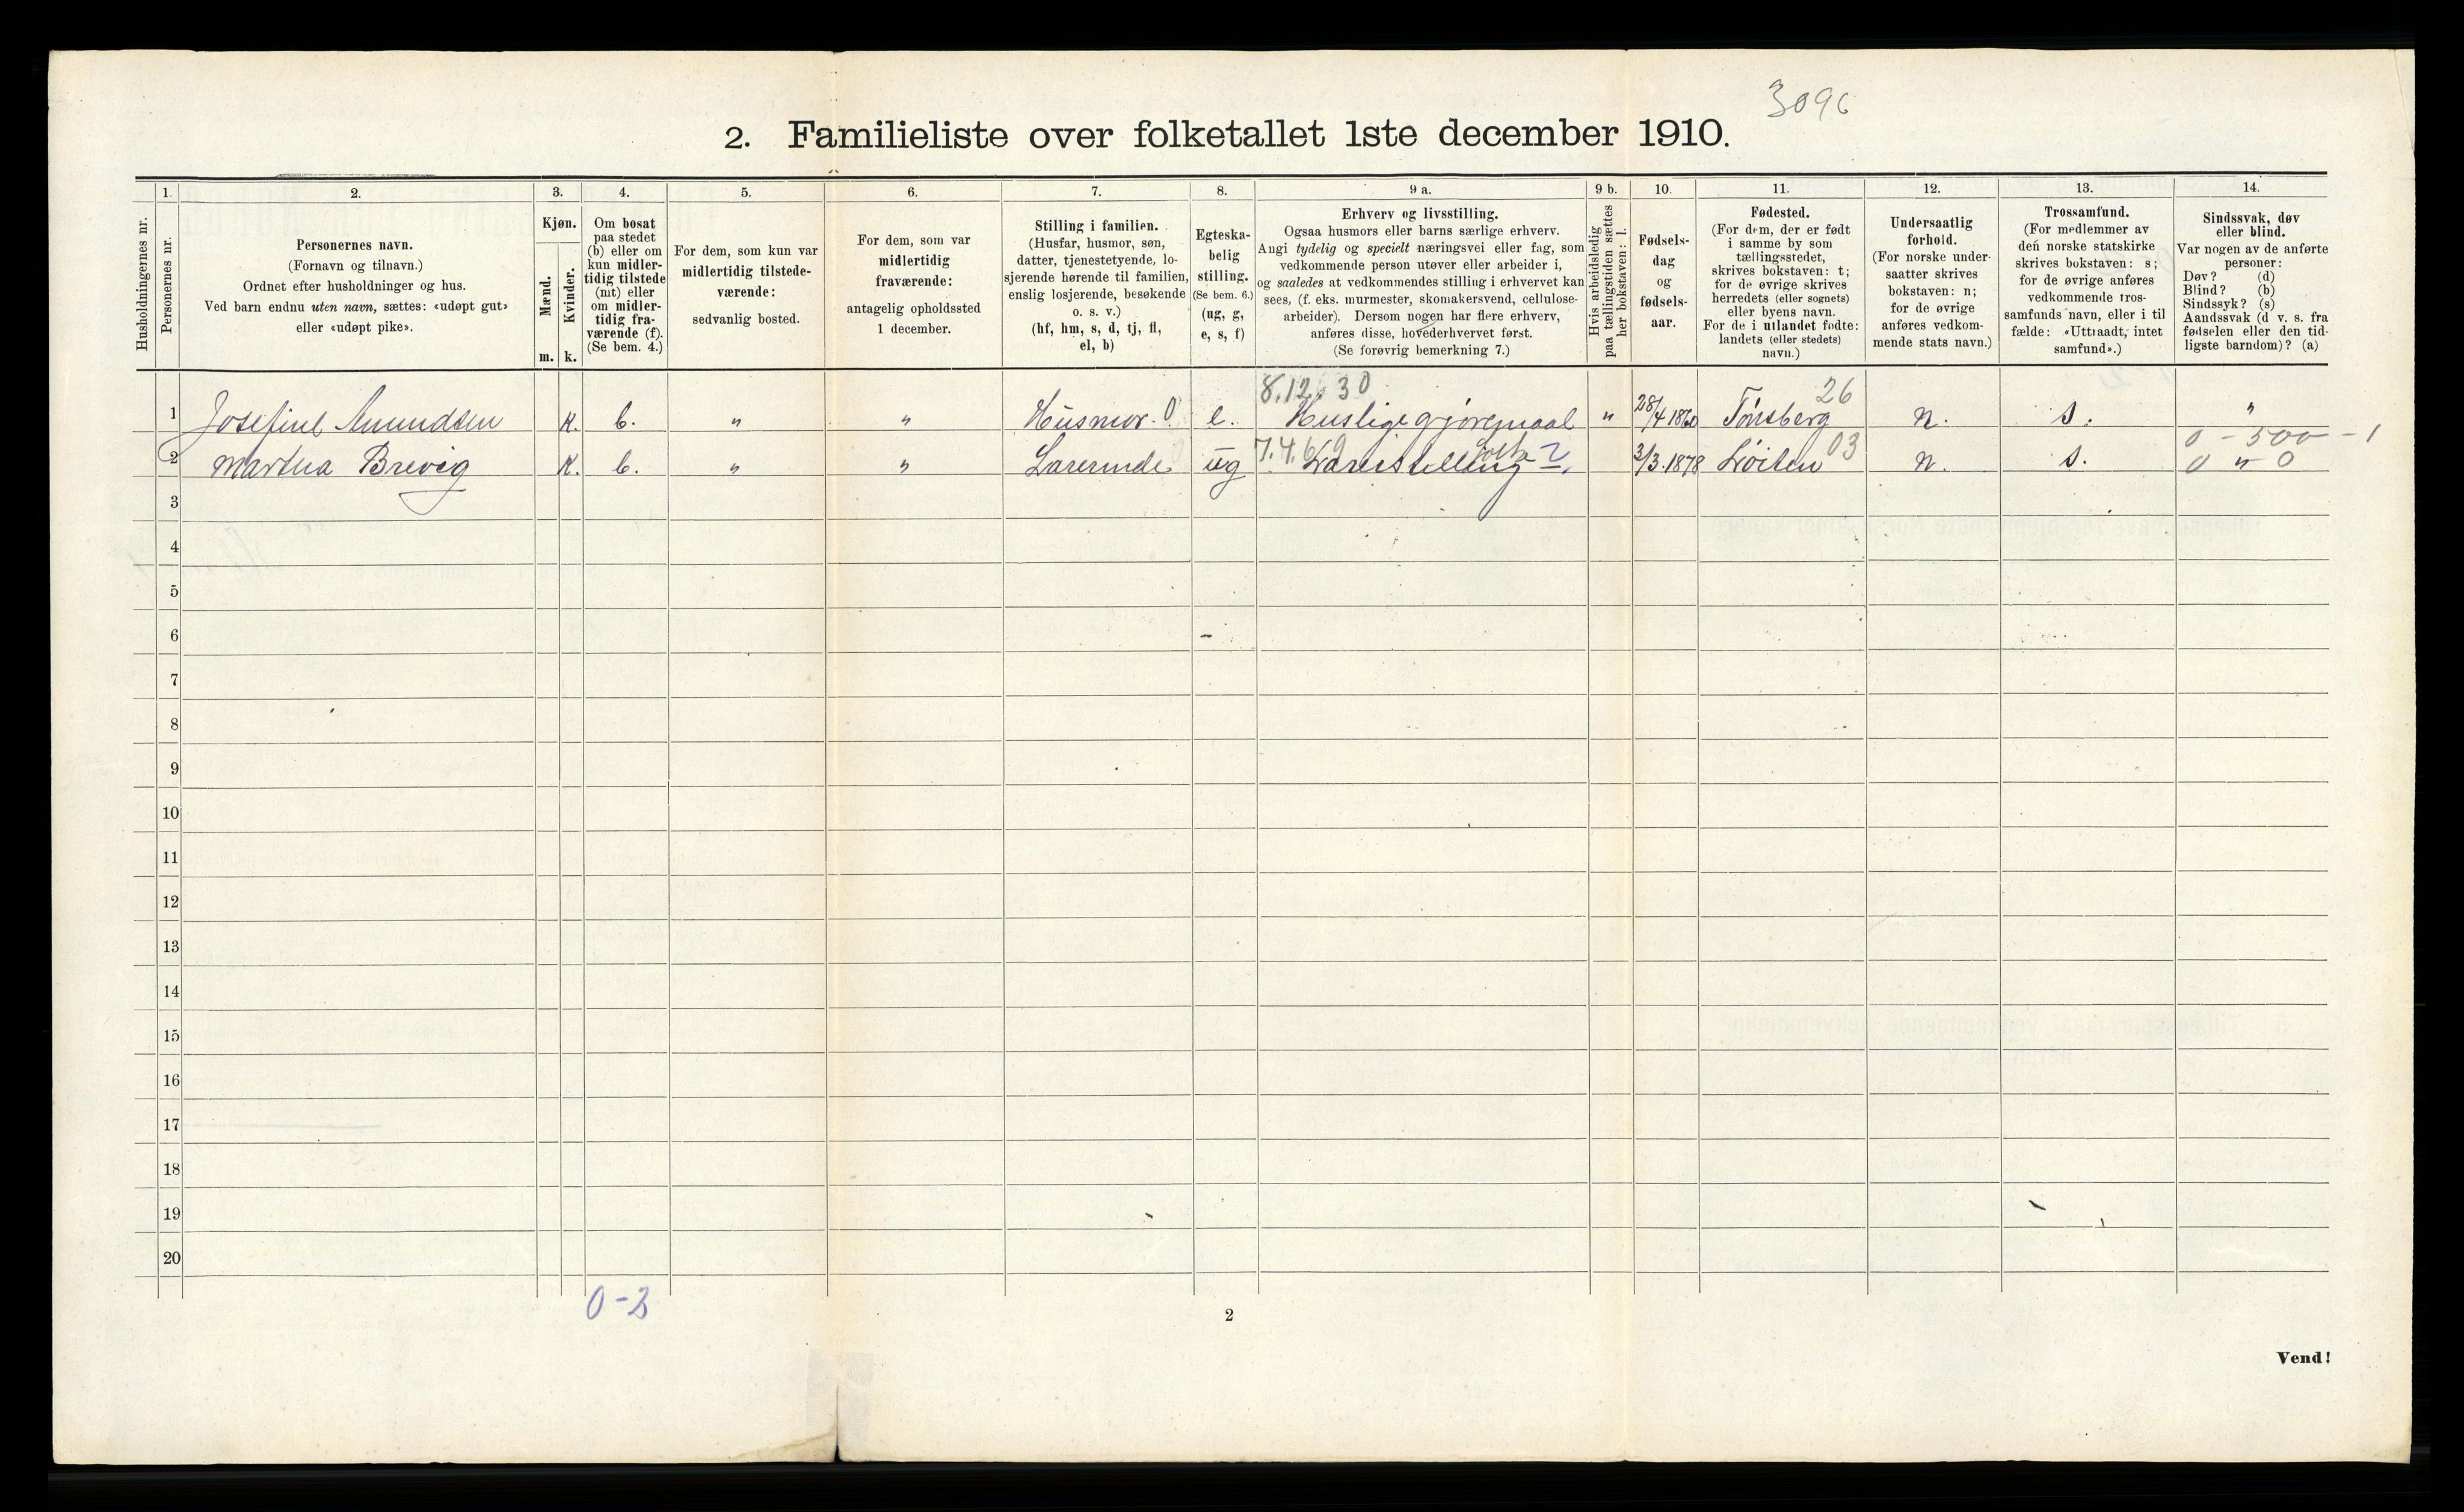 3096
2. Familieliste over folketallet 1ste december 1910.
1. 2. 3. 4. 5. 6. 7. 8. 9 a. 9 b. 10. 11. 12. 13. 14.
Husholdningernes nr.
Personernes nr.
Personernes navn.
(Fornavn og tilnavn.)
Ordnet efter husholdninger og hus.
Ved barn endnu uten navn, sættes: «udøpt gut»
eller «udøpt pike».
Kjøn.
Mænd.
Kvinder.
m. k.
Om bosat
paa stedet
(b) eller om
kun midler-
tidig tilstede
(mt) eller
om midler-
tidig fra-
værende (f).
(Se bem. 4.)
For dem, som kun var
midlertidig tilstede-
værende:
sedvanlig bosted.
For dem, som var
midlertidig
fraværende:
antagelig opholdssted
1 december.
Stilling i familien.
(Husfar, husmor, søn,
datter, tjenestetyende, lo-
sjerende hørende til familien,
enslig losjerende, besøkende
o. s. v.)
(hf, hm, s, d, tj, fl,
el, b)
Egteska-
belig
stilling.
(Se bem. 6.)
(ug, g,
e, s, f)
Erhverv og livsstilling.
Ogsaa husmors eller barns særlige erhverv.
Angi tydelig og specielt næringsvei eller fag, som
vedkommende person utøver eller arbeider i,
og saaledes at vedkommendes stilling i erhvervet kan
sees, (f. eks. murmester, skomakersvend, cellulose-
arbeider). Dersom nogen har flere erhverv,
anføres disse, hovederhvervet først.
(Se forøvrig bemerkning 7.)
Hvis arbeidsledig
paa tællingstiden sættes
her bokstaven: l.
Fødsels-
dag
og
fødsels-
aar.
Fødested.
(For dem, der er født
i samme by som
tællingsstedet,
skrives bokstaven: t;
for de øvrige skrives
herredets (eller sognets)
eller byens navn.
For de i utlandet fødte:
landets (eller stedets)
navn.)
Undersaatlig
forhold.
(For norske under-
saatter skrives
bokstaven: n;
for de øvrige
anføres vedkom-
mende stats navn.)
Trossamfund.
(For medlemmer av
den norske statskirke
skrives bokstaven: s;
for de øvrige anføres
vedkommende tros-
samfunds navn, eller i til
fælde: «Uttraadt, intet
samfund».)
Sindssvak, døv
eller blind.
Var nogen av de anførte
personer:
Døv? (d)
Blind? (b)
Sindssyk? (s)
Aandssvak (d v. s. fra
fødselen eller den tid-
ligste barndom)? (a)
8.12. 30 26
1 Josefine Amundsen k. b. " " Husmor. 0 e. Huslige gjøremaal " 28/4 1860 Tønsberg n. s. "
7.4.6.9 03 0 - 500 - 1
2 Martha Brevig k. b. " " Lærerinde ug Lærerstilling 3/3. 1878 Løiten n. s. 0 " 0
3
4
5
6
7
8
9
10
11
12
13
14
15
16
17
18
19
20
0-2
2
Vend!